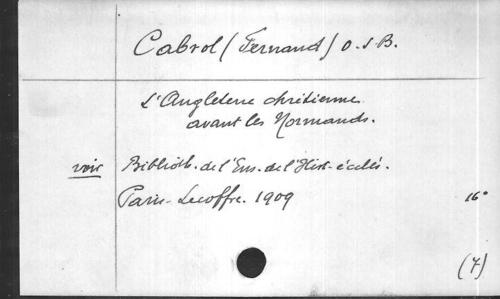 Cabrol (Fernand) O.S.B.
L'Angleterre chrétienne
avant les Normands.
voir Biblioth. de l'Ens. de l'Hist. ecclés.
Paris - Lecoffre. 1909 16°
(7)